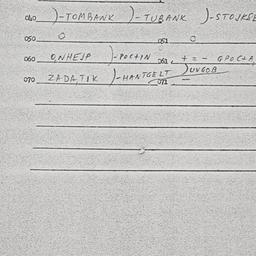 040 )-TOMBANK )-TUBANK )-STOJKSE
050 0 051 0
060 O,NHEJP )-POCTIN 061 + = - GPOCTA
070 ZADA,TIK )-HANTGELT 071 -